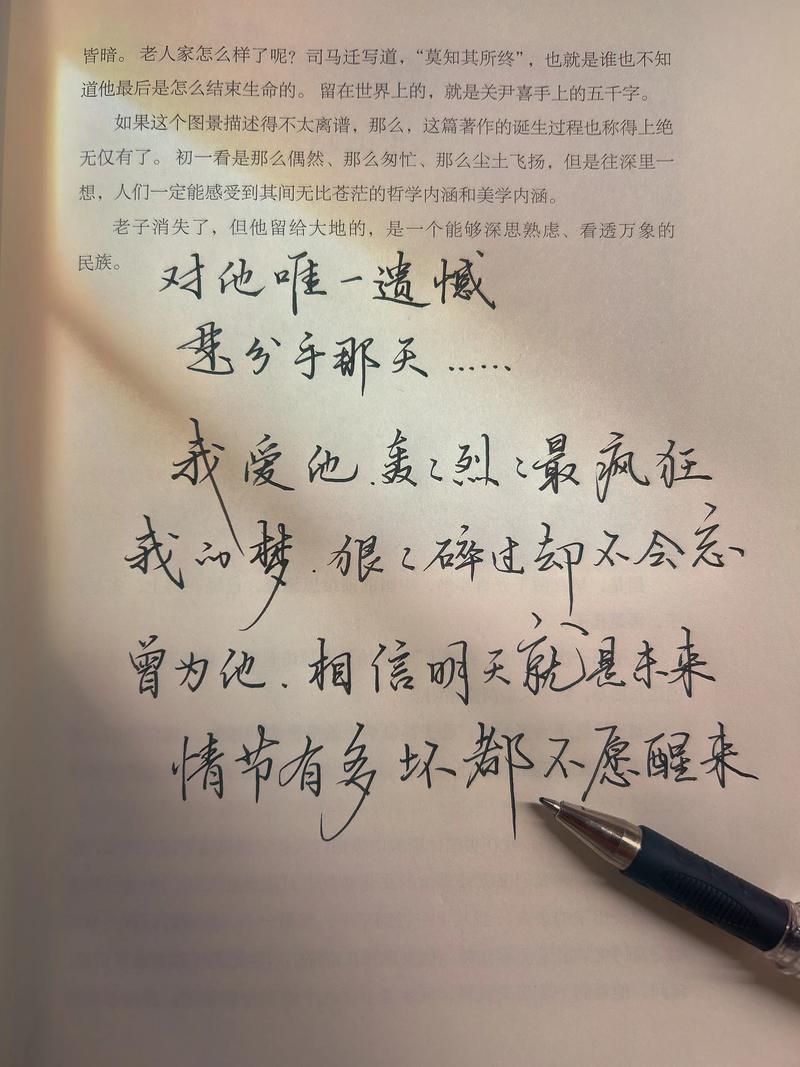 皆暗。老人家怎么样了呢？司马迁写道，“莫知其所终”，也就是谁也不知
道他最后是怎么结束生命的。留在世界上的，就是关尹喜手上的五千字。
如果这个图景描述得不太离谱，那么，这篇著作的诞生过程也称得上绝
无仅有了。初一看是那么偶然、那么匆忙、那么尘土飞扬，但是往深里一
想，人们一定能感受到其间无比苍茫的哲学内涵和美学内涵。
老子消失了，但他留给大地的，是一个能够深思熟虑、看透万象的
民族。
对他唯一遗憾
是分手那天……
我爱他.轰々烈々最疯狂
我的梦.狠々碎过却不会忘
曾为他.相信明天就是未来
情节有多坏都不愿醒来